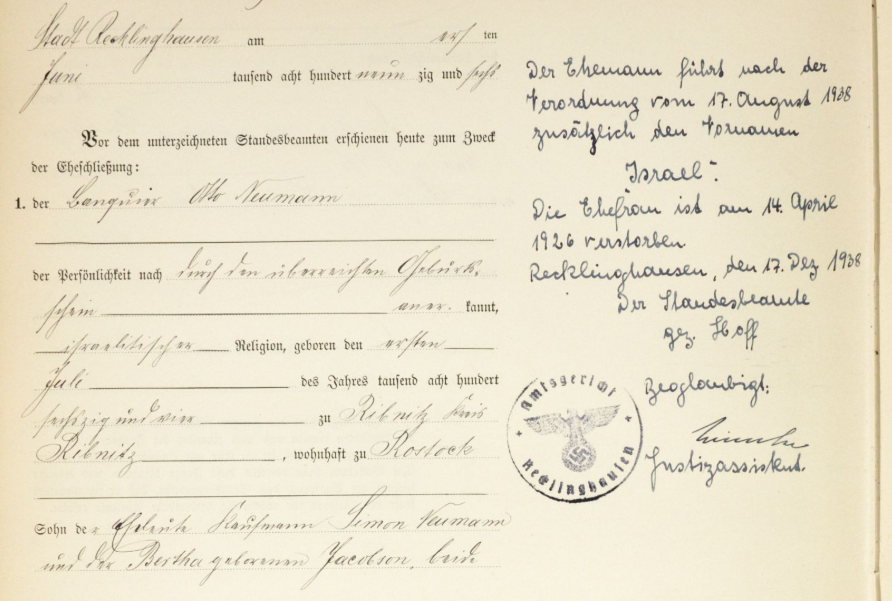 Stadt Recklinghausen am ersten
Juni tausend acht hundert neunzig und sechs
Vor dem unterzeichneten Standesbeamten erschienen heute zum Zweck
der Eheschließung:
1. der Banquier Otto Neumann
der Persönlichkeit nach durch den überreichten Geburts-
schein anerkannt,
israelitischer Religion, geboren den ersten
Juli des Jahres tausend acht hundert
sechszig und vier zu Ribnitz Kreis
Ribnitz, wohnhaft zu Rostock
Sohn der Eheleute Kaufmann Simon Neumann
und der Bertha geborenen Jacobson, beide
Der Ehemann führt nach der
Verordnung vom 17. August 1938
zusätzlich den Vornamen
Israel".
Die Ehefrau ist am 14. April
1926 verstorben.
Recklinghausen, den 17. Dez 1938
Der Standesbeamte
gez. Hoff
Beglaubigt:
Justizassistent.
Amtsgericht
Recklinghausen